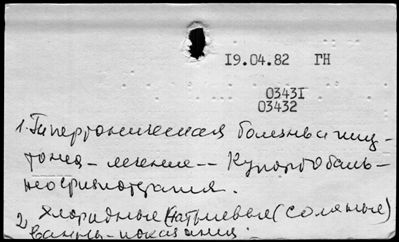 19.04.82 ГН
03431
03432
1. Гипертоническая болезнь и гипо-
тония - лечение -- Курортобаль-
неофизиотерапия.
2) Хлоридные натриевые (соляные)
ванны - показания.